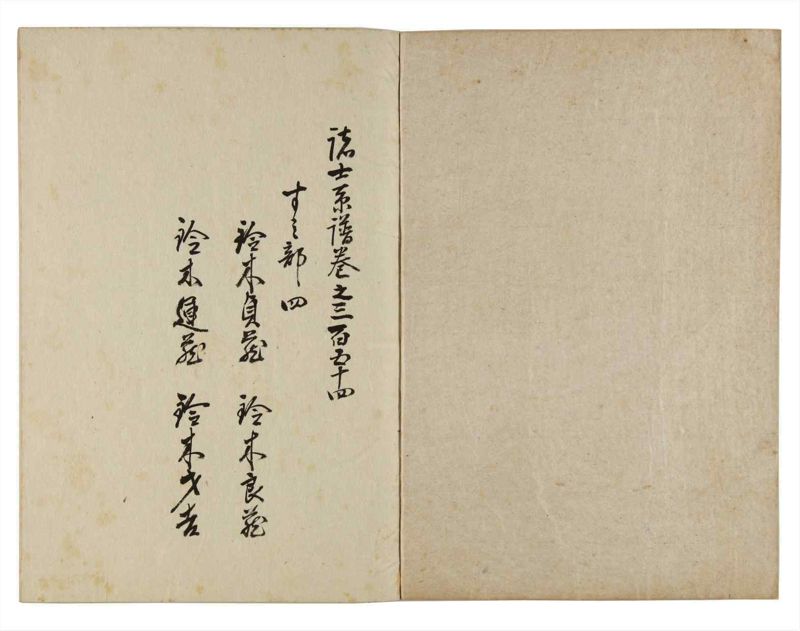 諸士系譜巻之三百五十四
す之部四
鈴木貞蔵　鈴木良蔵
鈴木運蔵　鈴木才吉